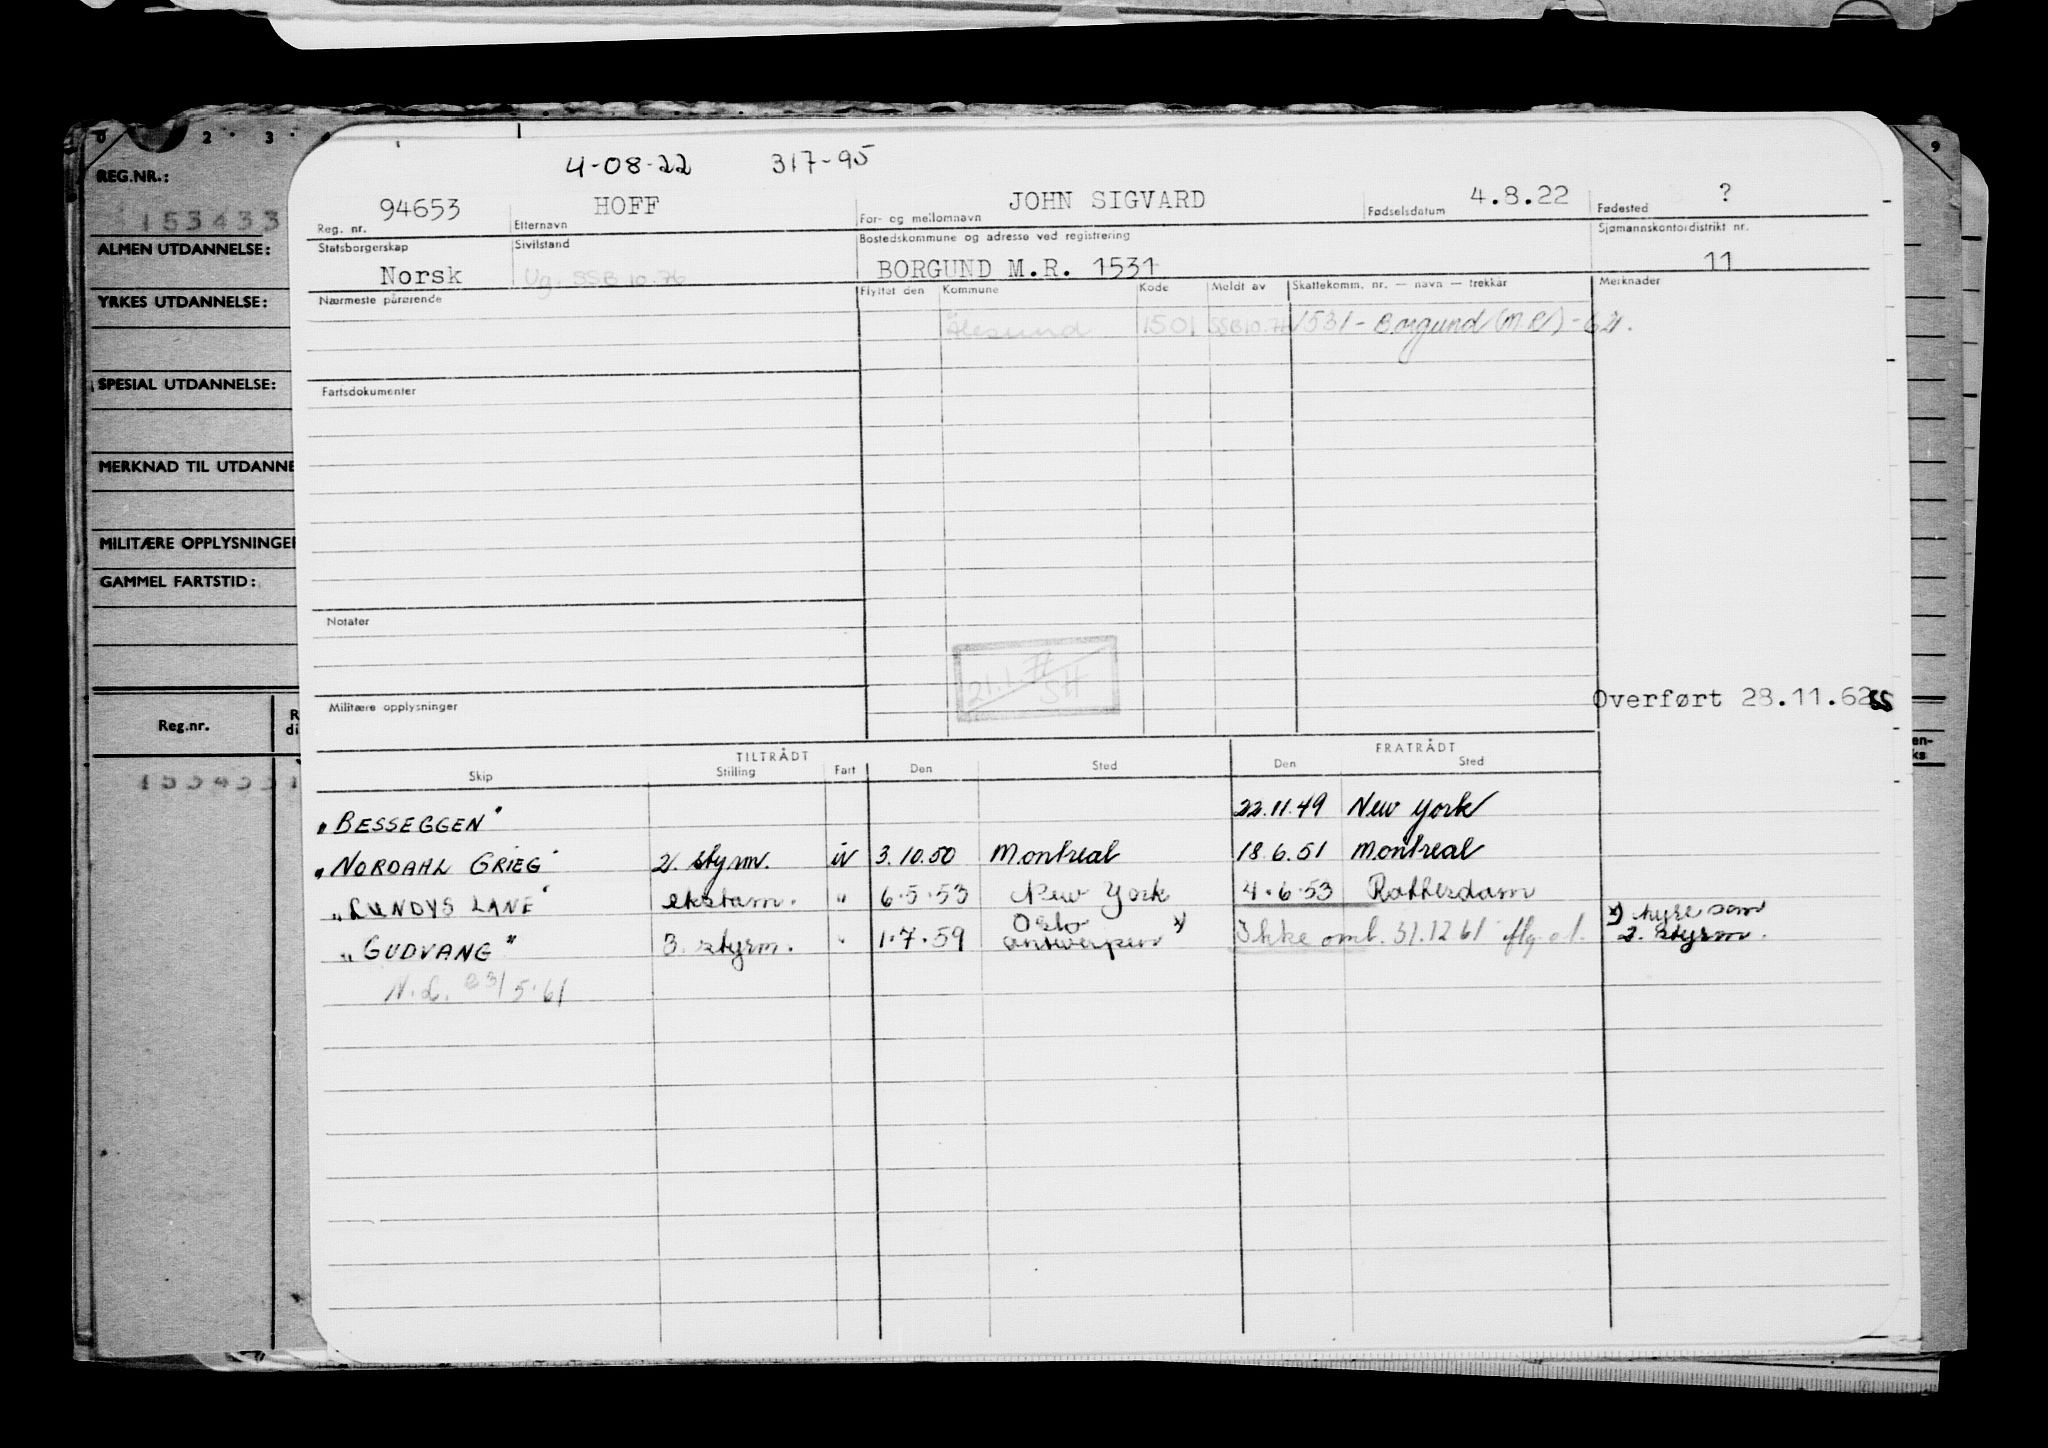 0 2 3 9
REG.NR.:
153433
ALMEN UTDANNELSE:
YRKES UTDANNELSE:
SPESIAL UTDANNELSE:
MERKNAD TIL UTDANNE
MILITÆRE OPPLYSNINGER
GAMMEL FARTSTID:
Reg.nr.
R
di
153433
en-
ks
4-08-22 317-95
94653 HOFF JOHN SIGVARD 4.8.22 ?
Reg. nr. Etternavn For- og mellomnavn Fødselsdatum Fødested
Statsborgerskap Sivilstand Bostedskommune og adresse ved registrering Sjømannskontordistrikt nr.
Norsk Ug. SSB 10.76 BORGUND M.R. 1531 11
Nærmeste pårørende Flyttet den Kommune Kode Meldt av Skattekomm. nr. — navn — trekkår Merknader
Ålesund 1501 SSB 10.76 1531 - Borgund (M.R) - 62.
Fartsdokumenter
Notater
21.1.77
SH
Militære opplysninger
Overført 28.11.62
TILTRÅDT FRATRÅDT
Skip Stilling Fart Den Sted Den Sted
"BESSEGGEN" 22.11.49 New York
"NORDAHL GRIEG" 2. styrm. iv 3.10.50 Montreal 18.6.51 Montreal
"LUNDYS LANE" ekstam. " 6.5.53 New York 4.6.53 Rotterdam
"GUDVANG" 3. styrm. " 1.7.59 Oslo antwerpen x) Ikke omb. 31.12 61 iflg. x) hyre som
2. styrm.
N.L. 31/5.61